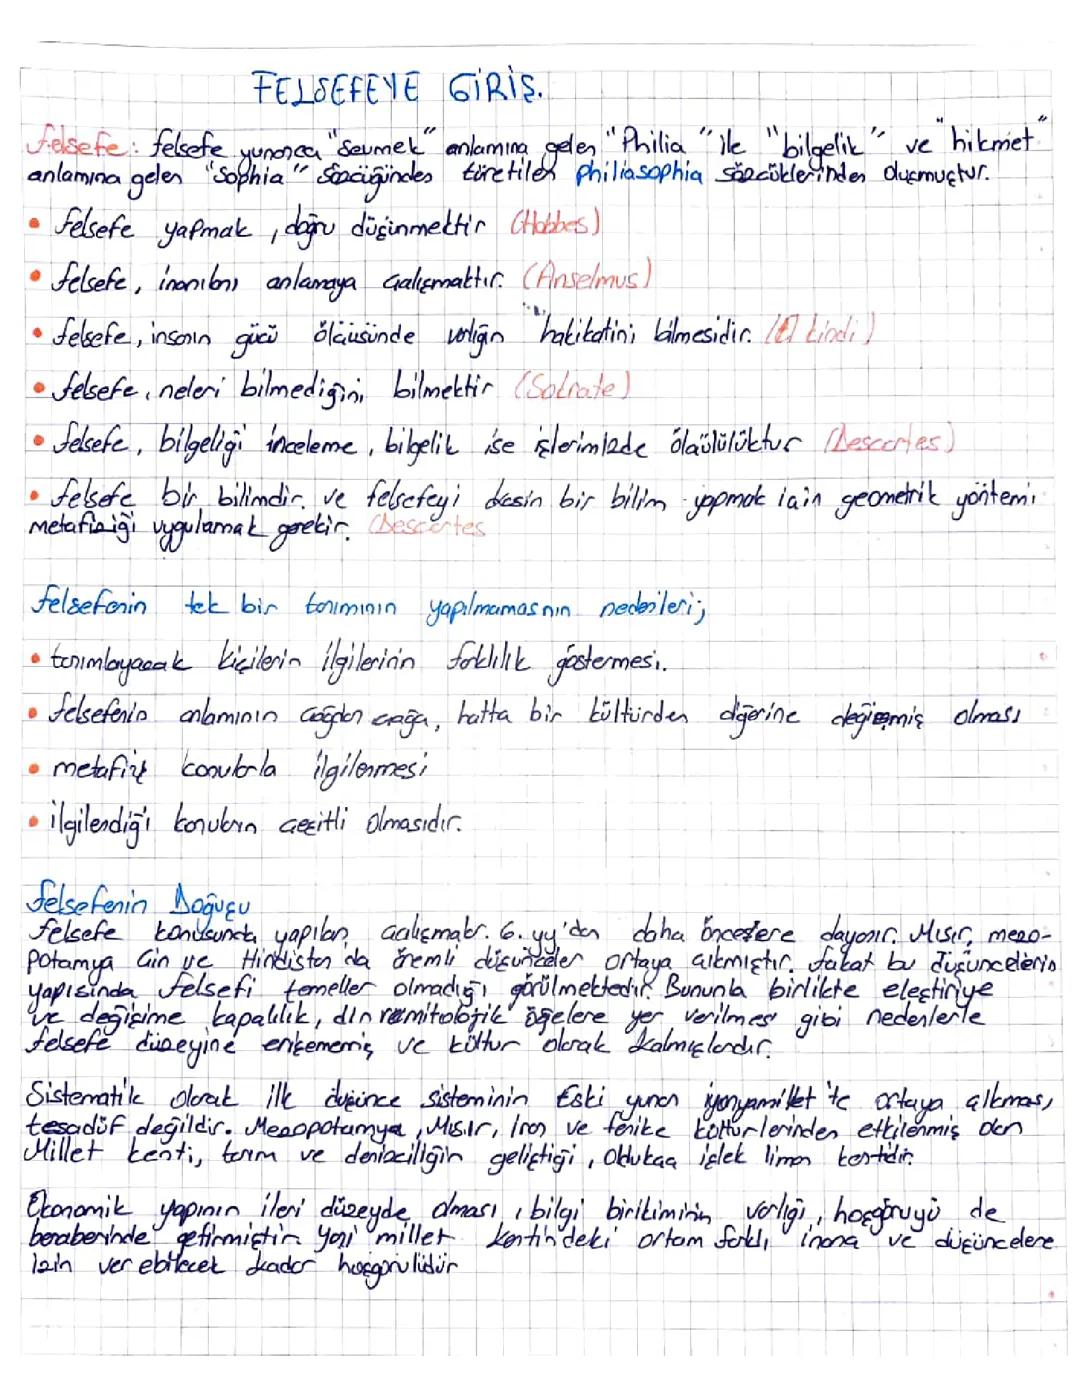 FELSEFEYE GİRİŞ.
felsefe: felsefe yunanca "Sevmek" anlamına gelen "Philia" ile "bilgelik" ve "hikmet"
anlamına gelen "Sophia" sözcüğünden türetilen philiasophia sözcüklerinden oluşmuştur.
• felsefe yapmak, doğru düşünmektir (Hobbes)
• felsefe, inanılanı anlamaya çalışmaktır. (Anselmus)
• felsefe, insanın gücü ölçüsünde varlığın hakikatini bilmesidir. (El kindi)
• felsefe, neleri bilmediğini bilmektir (Sokrate)
• felsefe, bilgeliği inceleme, bilgelik ise işlerimizde ölçülülüktur (Descartes)
• felsefe bir bilimdir. ve felsefeyi kesin bir bilim yapmak için geometrik yöntemi
metafiziği uygulamak gerekir. (Descartes
felsefenin tek bir tanımının yapılmamasının nedenleri;
• tanımlayacak kişilerin ilgilerinin farklılık göstermesi.
• felsefenin anlamının çağdan çağa, hatta bir kültürden diğerine değişmiş olması
• metafizik konularla ilgilenmesi
• ilgilendiği konuların çeşitli olmasıdır.
felsefenin Doğuşu
felsefe konusunda yapılan çalışmalar. 6. yy'dan daha öncesine dayanır. Mısır, mezo-
potamya Çin ve Hindistan da önemli düşünceler ortaya çıkmıştır. fakat bu düşüncelerin
yapısında felsefi temeller olmadığı görülmektedir. Bununla birlikte eleştiriye
ve değişime kapalılık, din mitolojik öğelere yer verilmesi gibi nedenlerle
felsefe düzeyine erişememiş ve kültur olarak kalmışlardır.
Sistematik olarak ilk düşünce sisteminin Eski yunan iyonyamillet'te ortaya çıkması
tesadüf değildir. Mezopotamya, Mısır, İran ve fenike kültürlerinden etkilenmiş olan
Millet kenti, tarım ve denizciliğin geliştiği, oldukça işlek liman kentidir.
Ekonomik yapının ileri düzeyde olması, bilgi birikiminin varlığı, hoşgörüyü de
beraberinde getirmiştir. Yani millet kentin'deki ortam farklı inanç ve düşüncelere
izin verebilecek kadar hoşgörülüdür